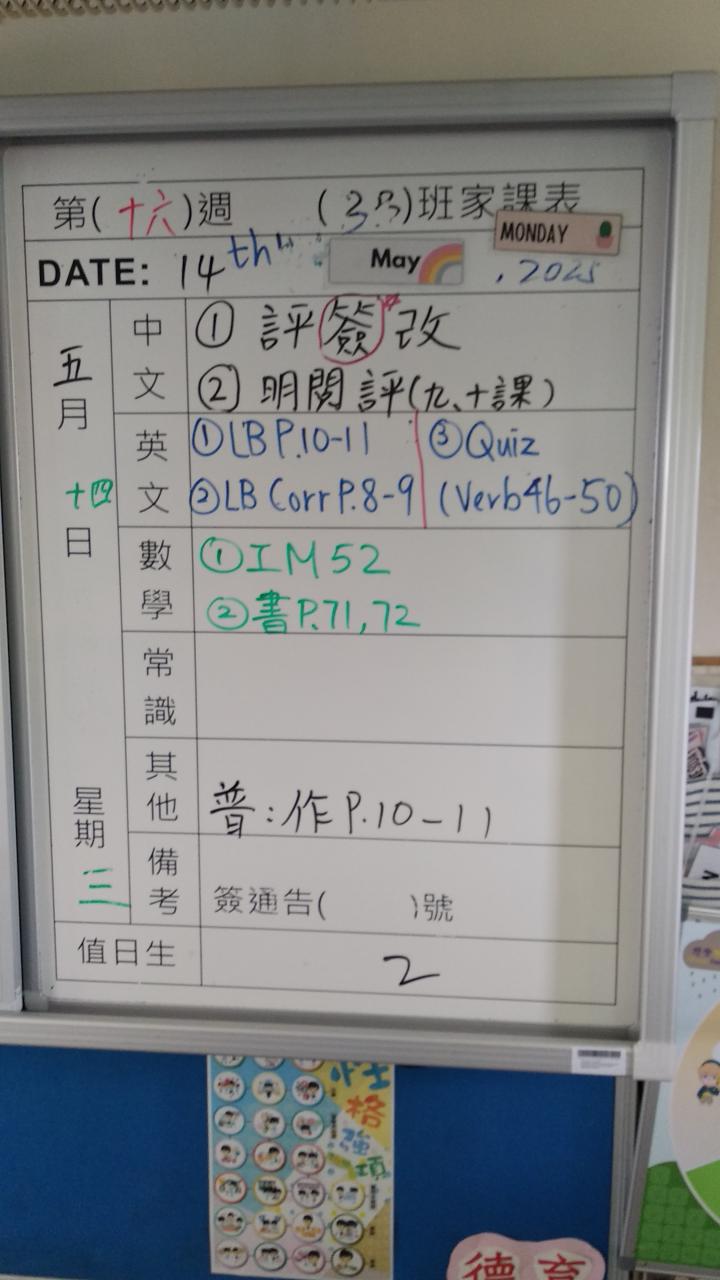 第(十六)週 (3B)班家課表
MONDAY
DATE: 14th May , 2025
五月十四日 星期三
中文
① 評簽改
② 明閱評(九、十課)
英文
① LB P.10-11
② LB Corr P.8-9
③ Quiz
(Verb 46-50)
數學
① IM 52
② 書P.71,72
常識
其他
普:作 P.10-11
備考
簽通告( )號
值日生
2
性格強項
德育